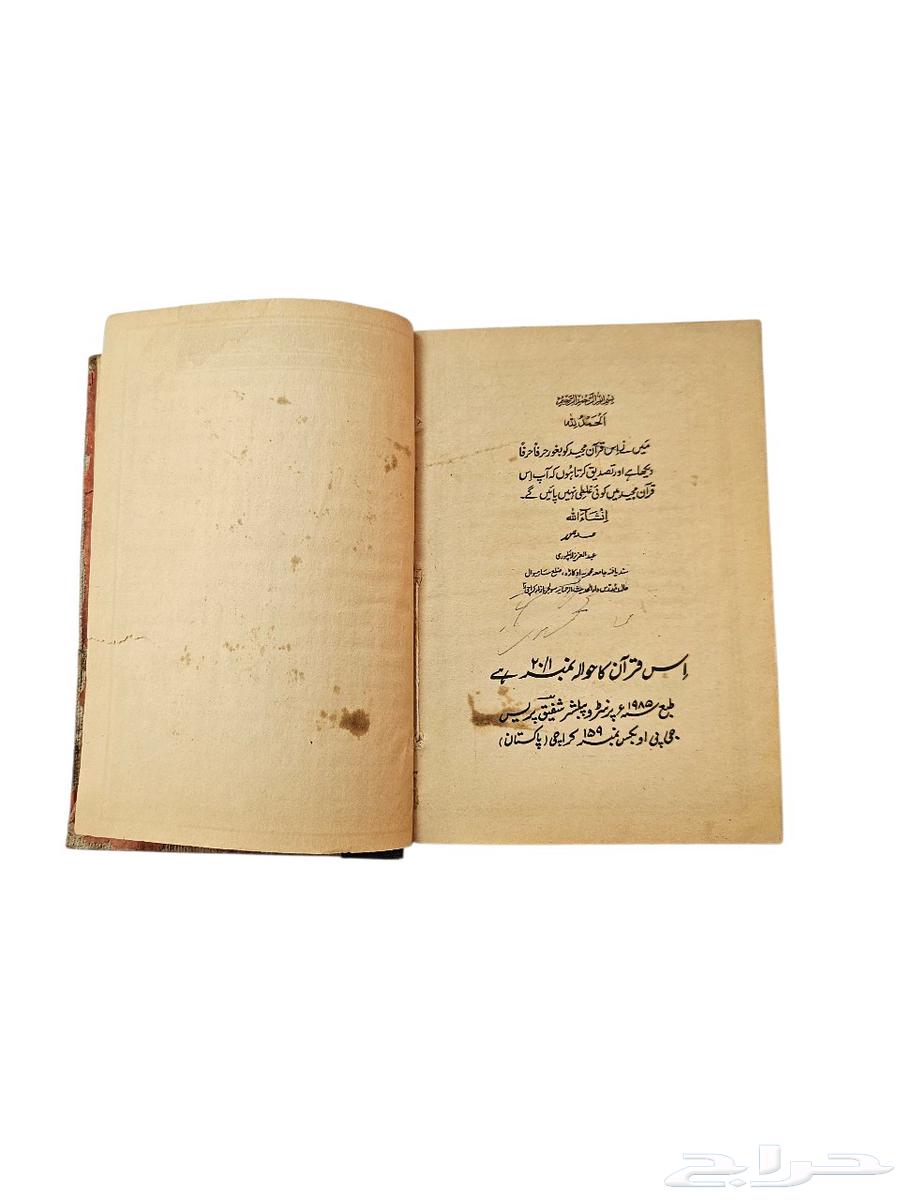 بسم الله الرحمن الرحيم
اَلْحَمْدُ لِلّٰه
مَیں نے اِس قرآن مجید کو بغور حرفاً حرفاً
دیکھا ہے اور تصدیق کرتا ہوں کہ آپ اِس
قرآن مجید میں کوئی غلیطی نہیں پائیں گے۔
اِنْشَآءَ اللّٰه
عبدالعزیز
سند یافتہ جامعہ محمدیہ اوکاڑہ، ضلع ساہیوال
اِس قرآن کا حوالہ نمبر ۲۰/۱ ہے
طبع سنہ ۱۹۸۵ء پرنٹر و پبلشر شفیق پریس
جی پی او بکس نمبر ۱۵۹ کراچی (پاکستان)
حراج